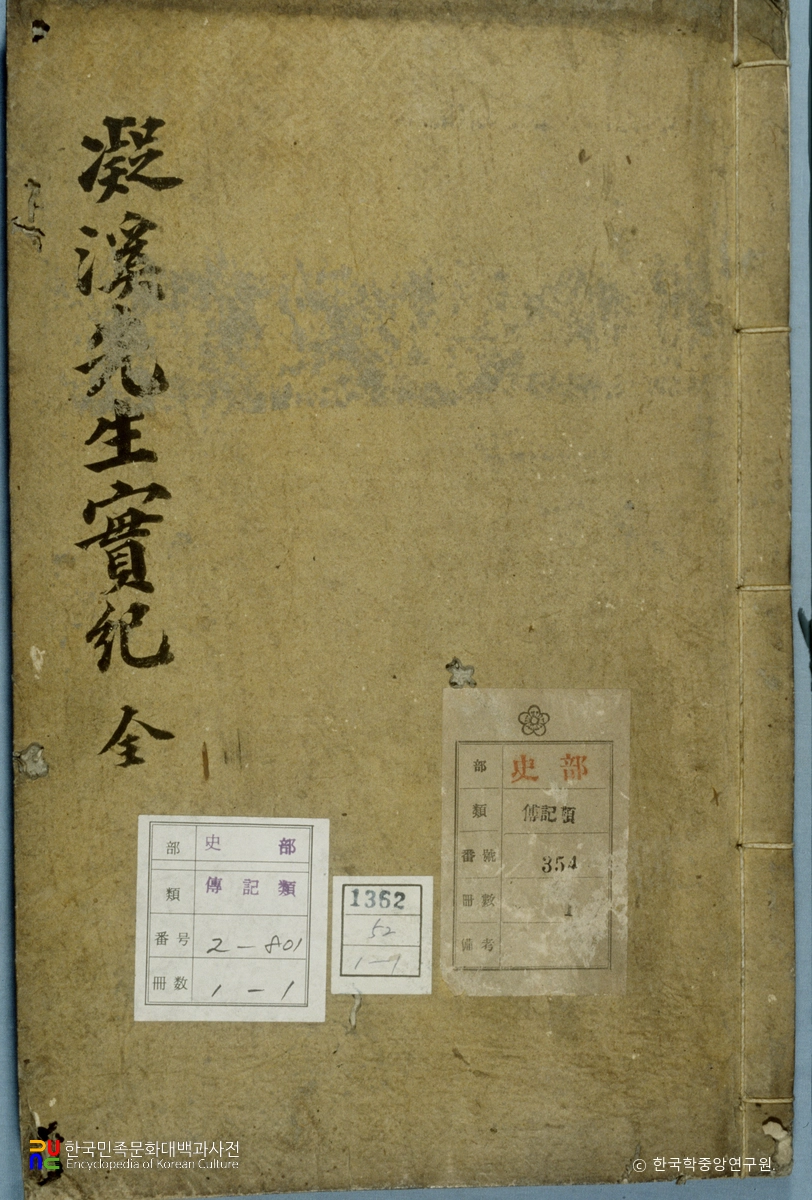 凝溪先生實紀 全
部 史部
類 傳記類
番号 2-801
冊数 1-1
1362
52
1-1
部 史部
類 傳記類
番號 354
冊數 1
備考
한국민족문화대백과사전
Encyclopedia of Korean Culture
© 한국학중앙연구원